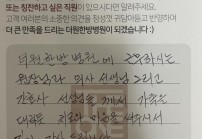 또는 칭찬하고 싶은 직원이 있으시다면 알려주세요.
고객 여러분의 소중한 의견을 정성껏 귀담아듣고 반영하며
더 큰 만족을 드리는 더원한방병원이 되겠습니다 :)
더원한방병원에 근무하시는
원장님과 의사 선생님 그리고
간호사 선생님들께서 가족을
대하는 마음으로